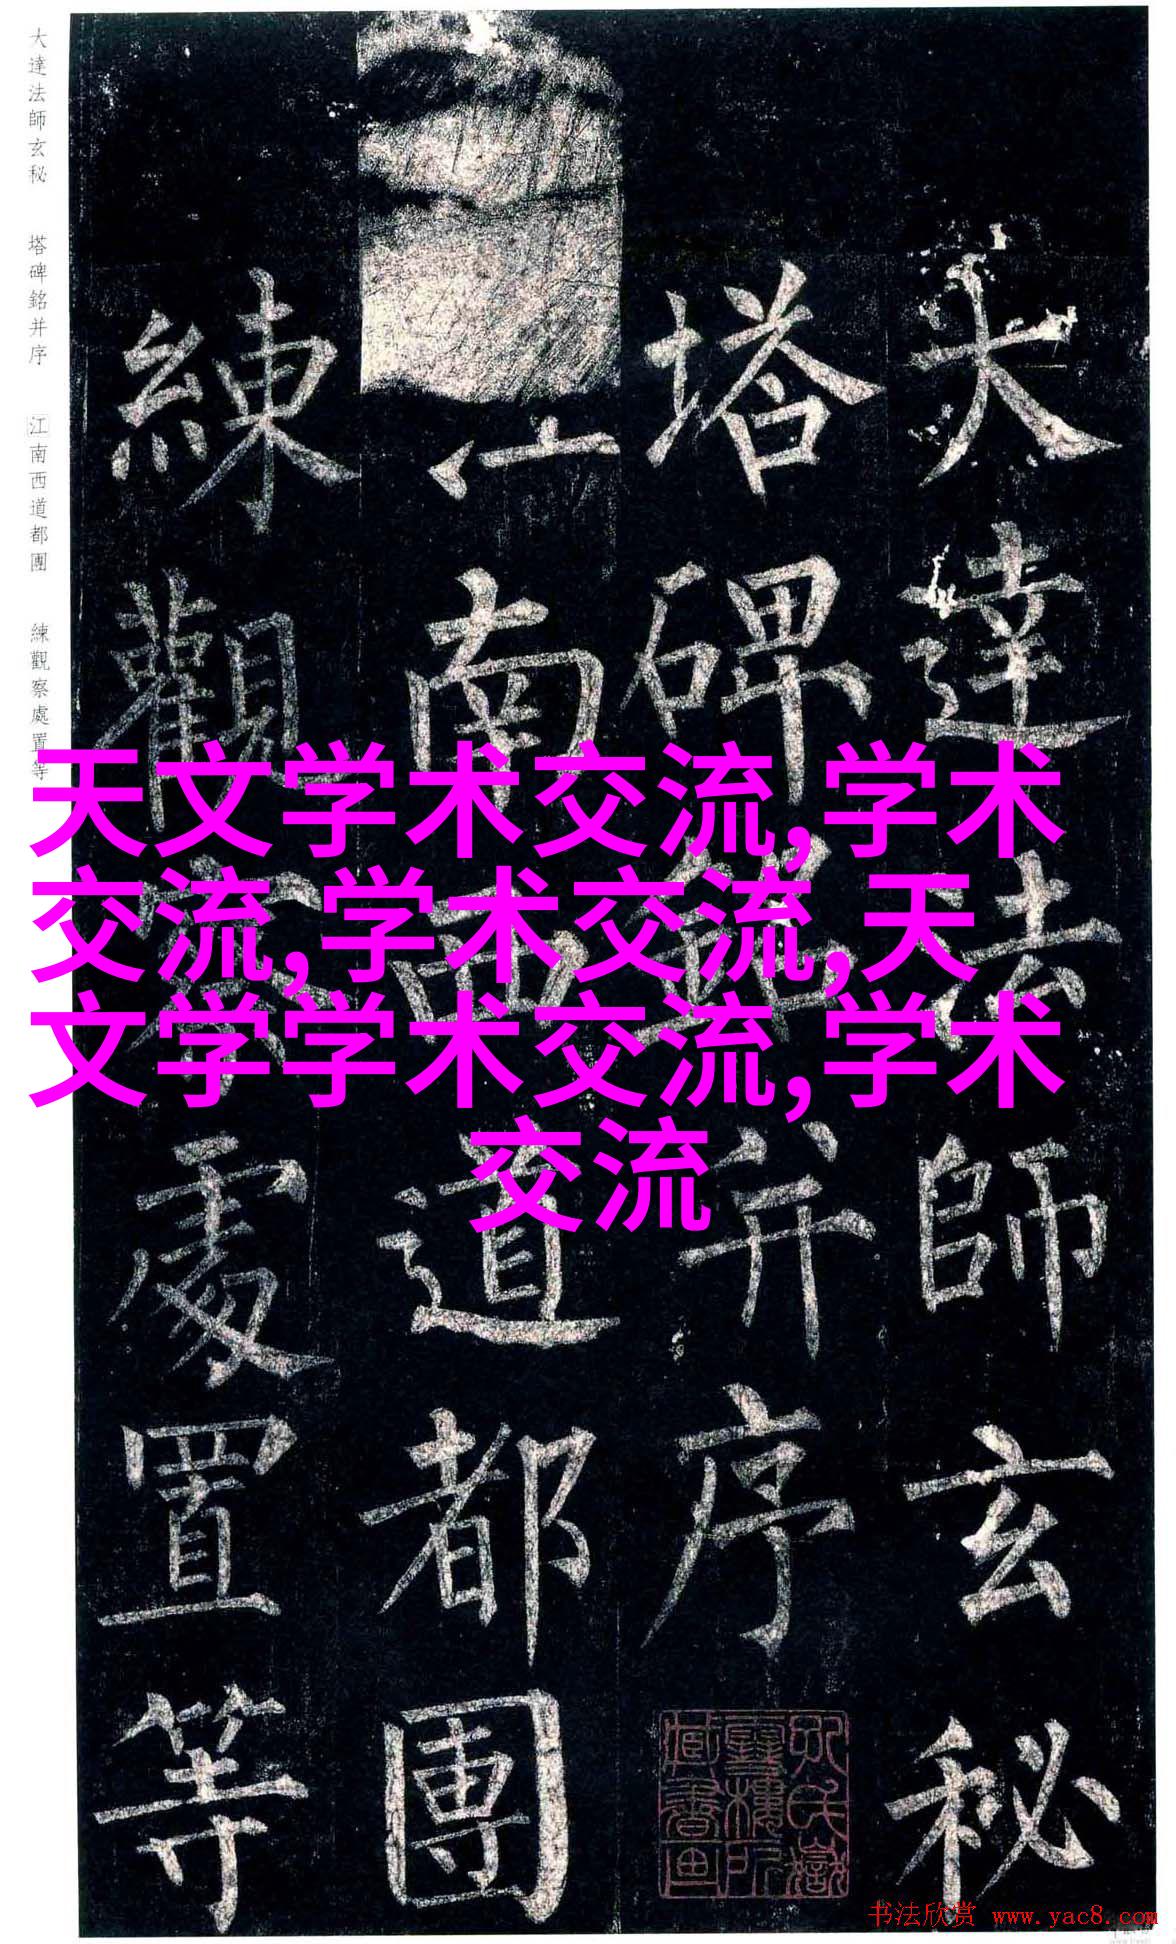 大達法師玄秘
塔碑銘并序
江南西道都團
練觀察處置等
大達法師玄秘
塔碑銘并序
江南西道都團
練觀察處置等
天文学术交流,学术
交流,学术交流,天
文学学术交流,学术
交流
书法欣赏 www.yac8.com